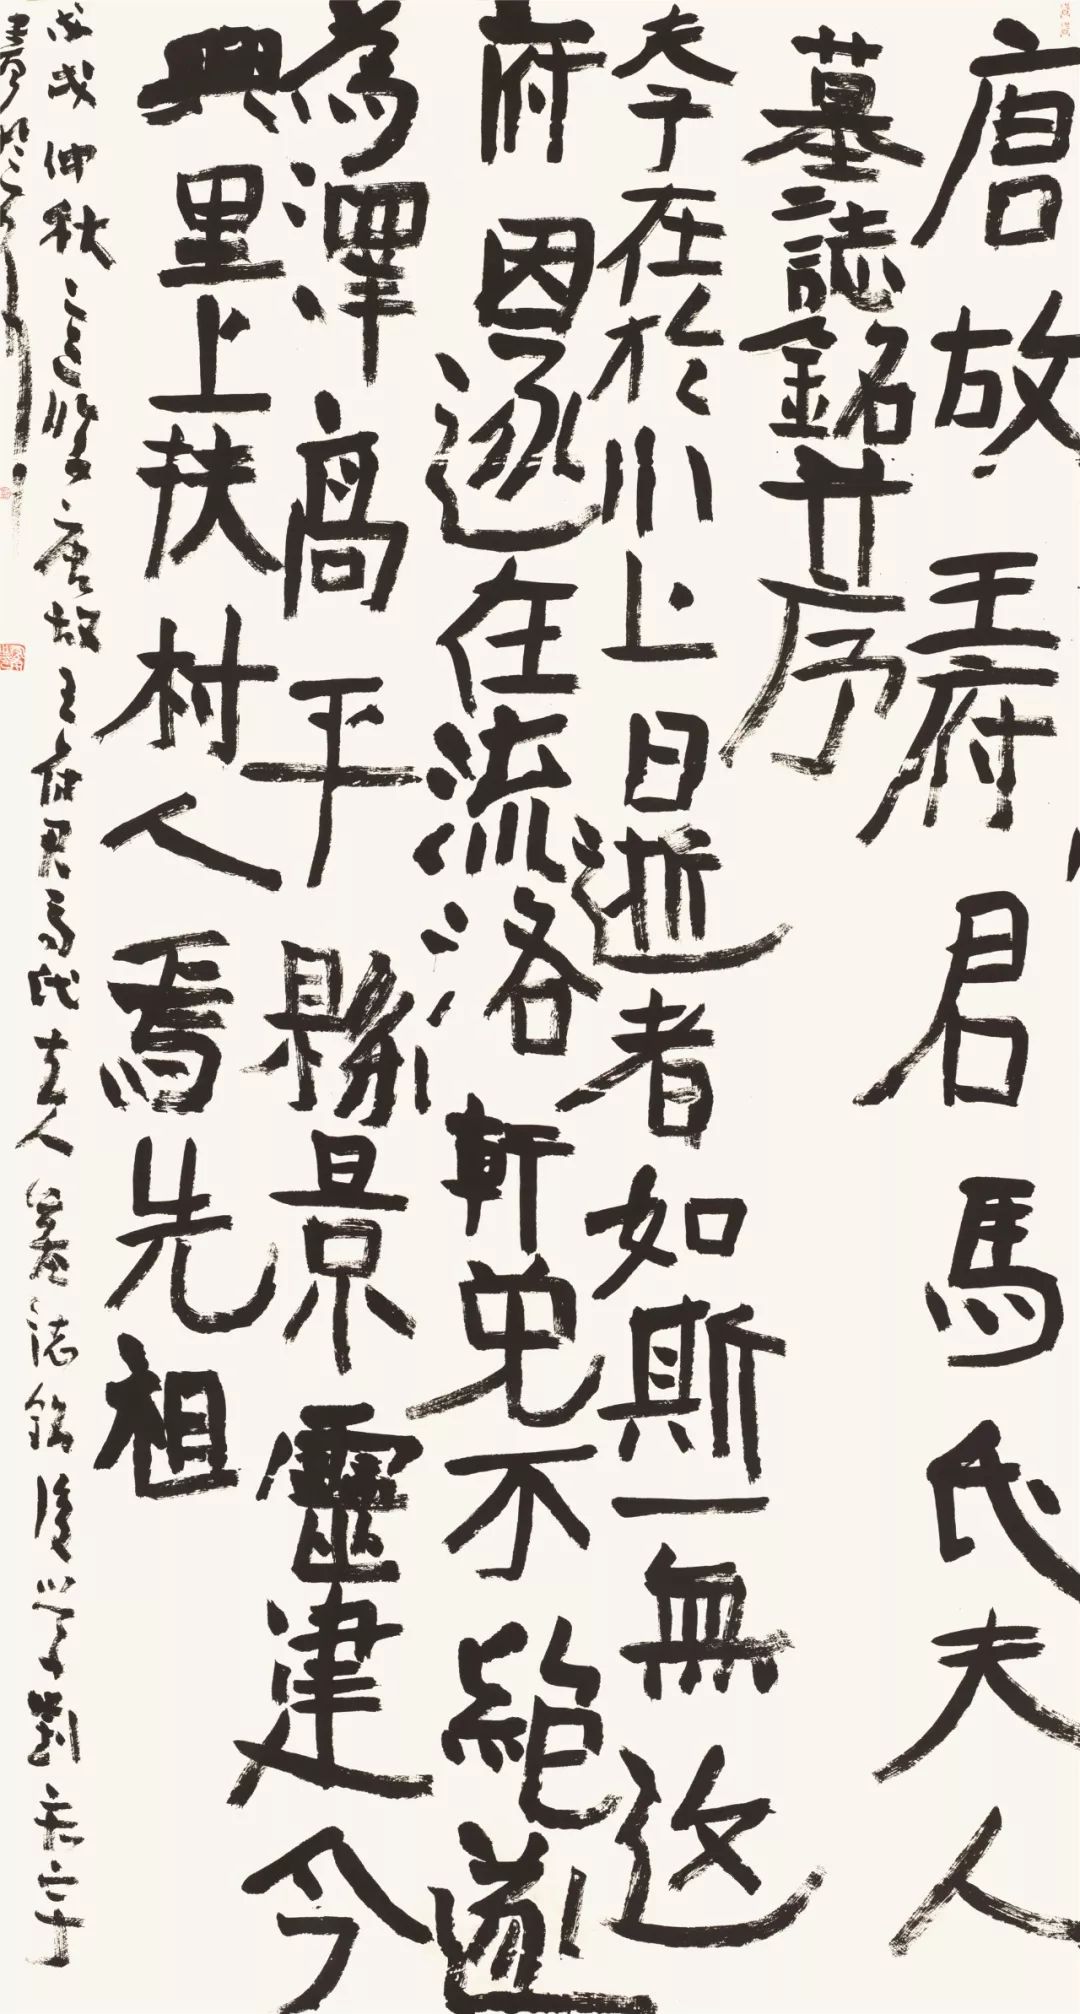 唐故王府君馬氏夫人
墓誌銘廿序
夫子在於川上曰逝者如斯一無迯
府因遂在流洛軒冕不絕遂
為澤高平縣景靈建今
興里上扶村人焉先祖
戊戌仲秋三臨唐故王府君馬氏夫人墓誌銘後學劉